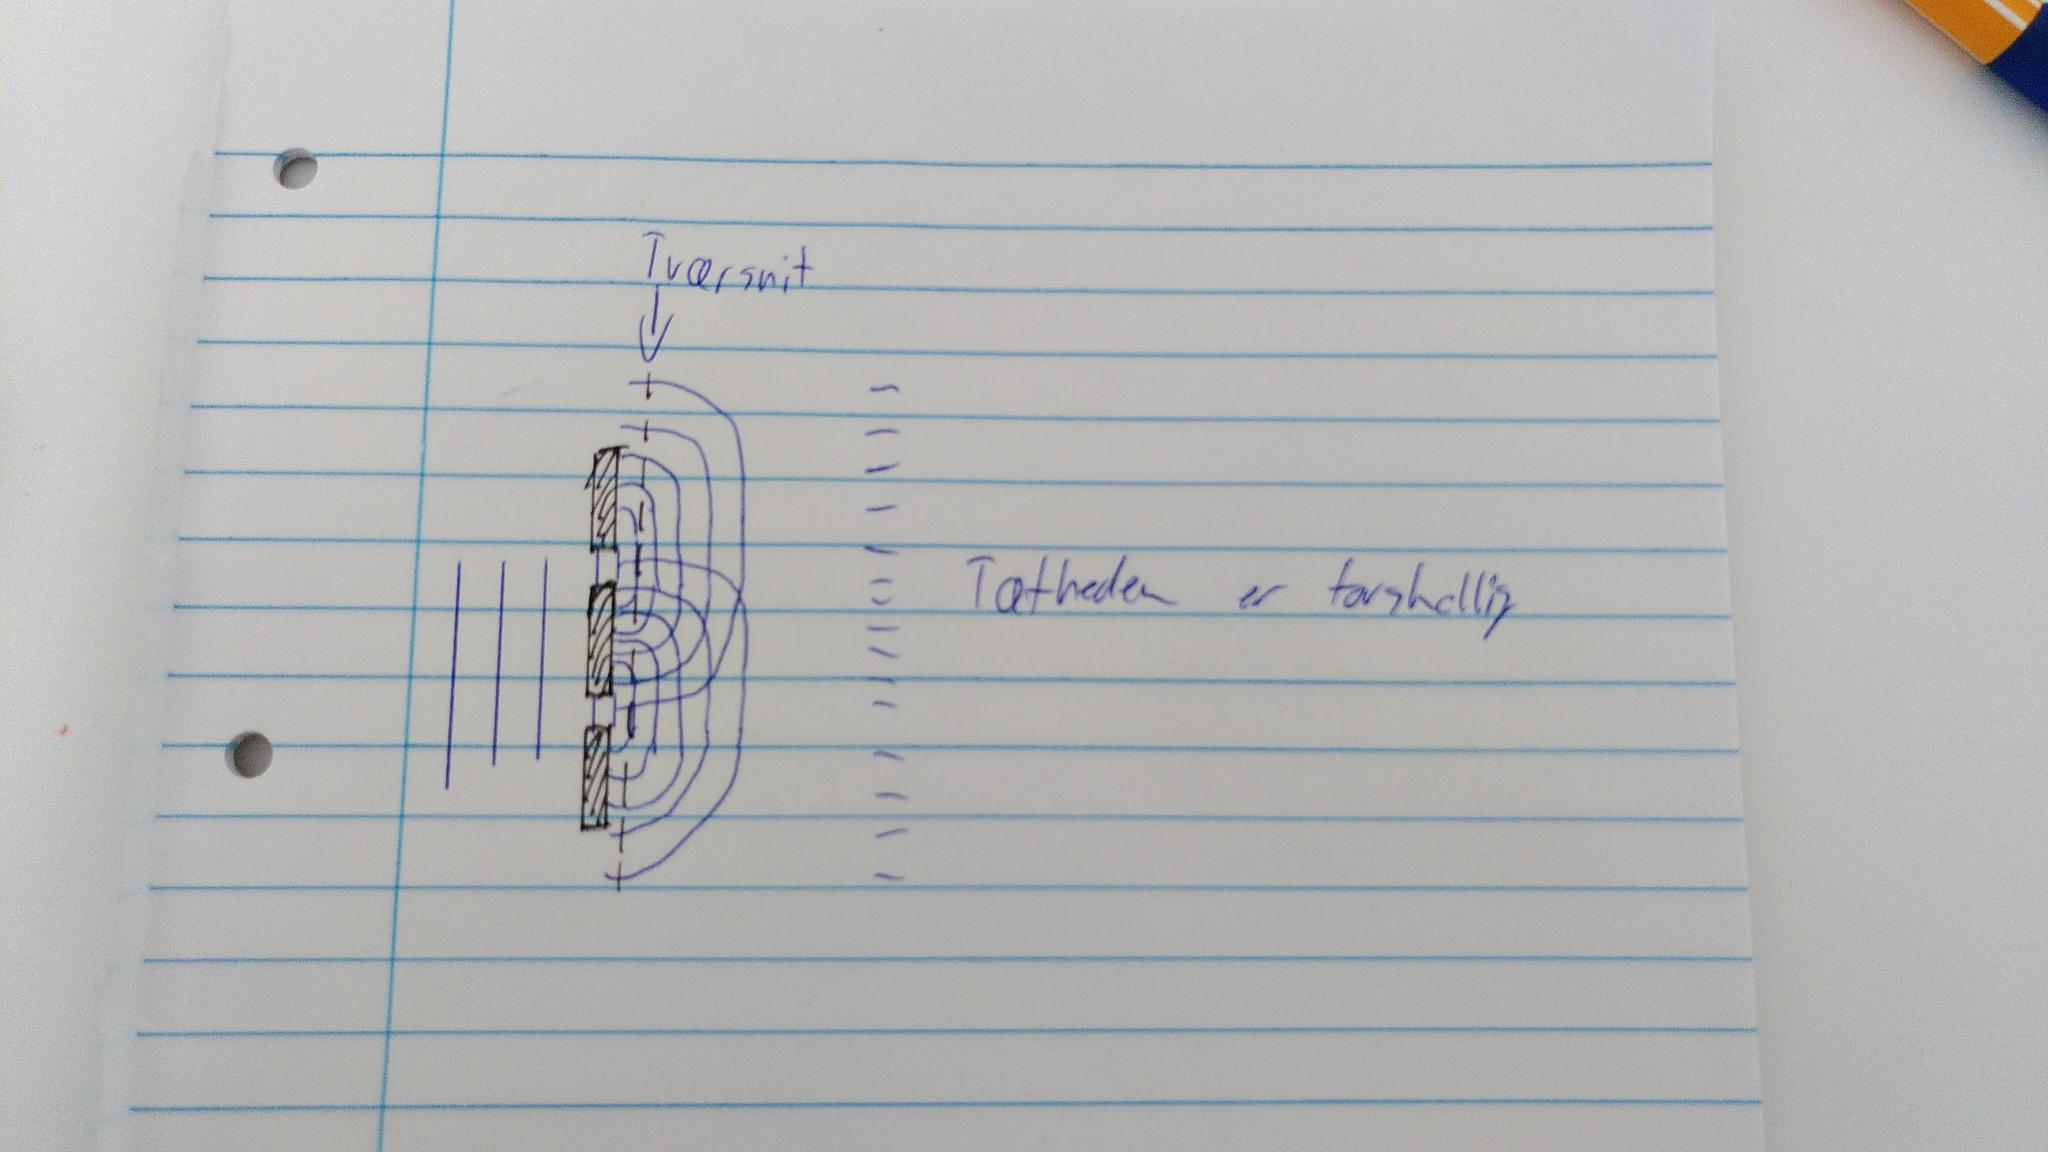 Tværsnit
Tætheden er forskellig